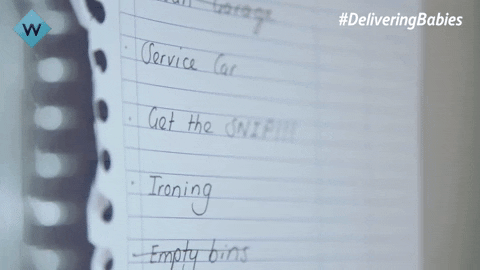 W
#DeliveringBabies
Garage
· Service Car
· Get the SNIP!!!
· Ironing
Empty bins